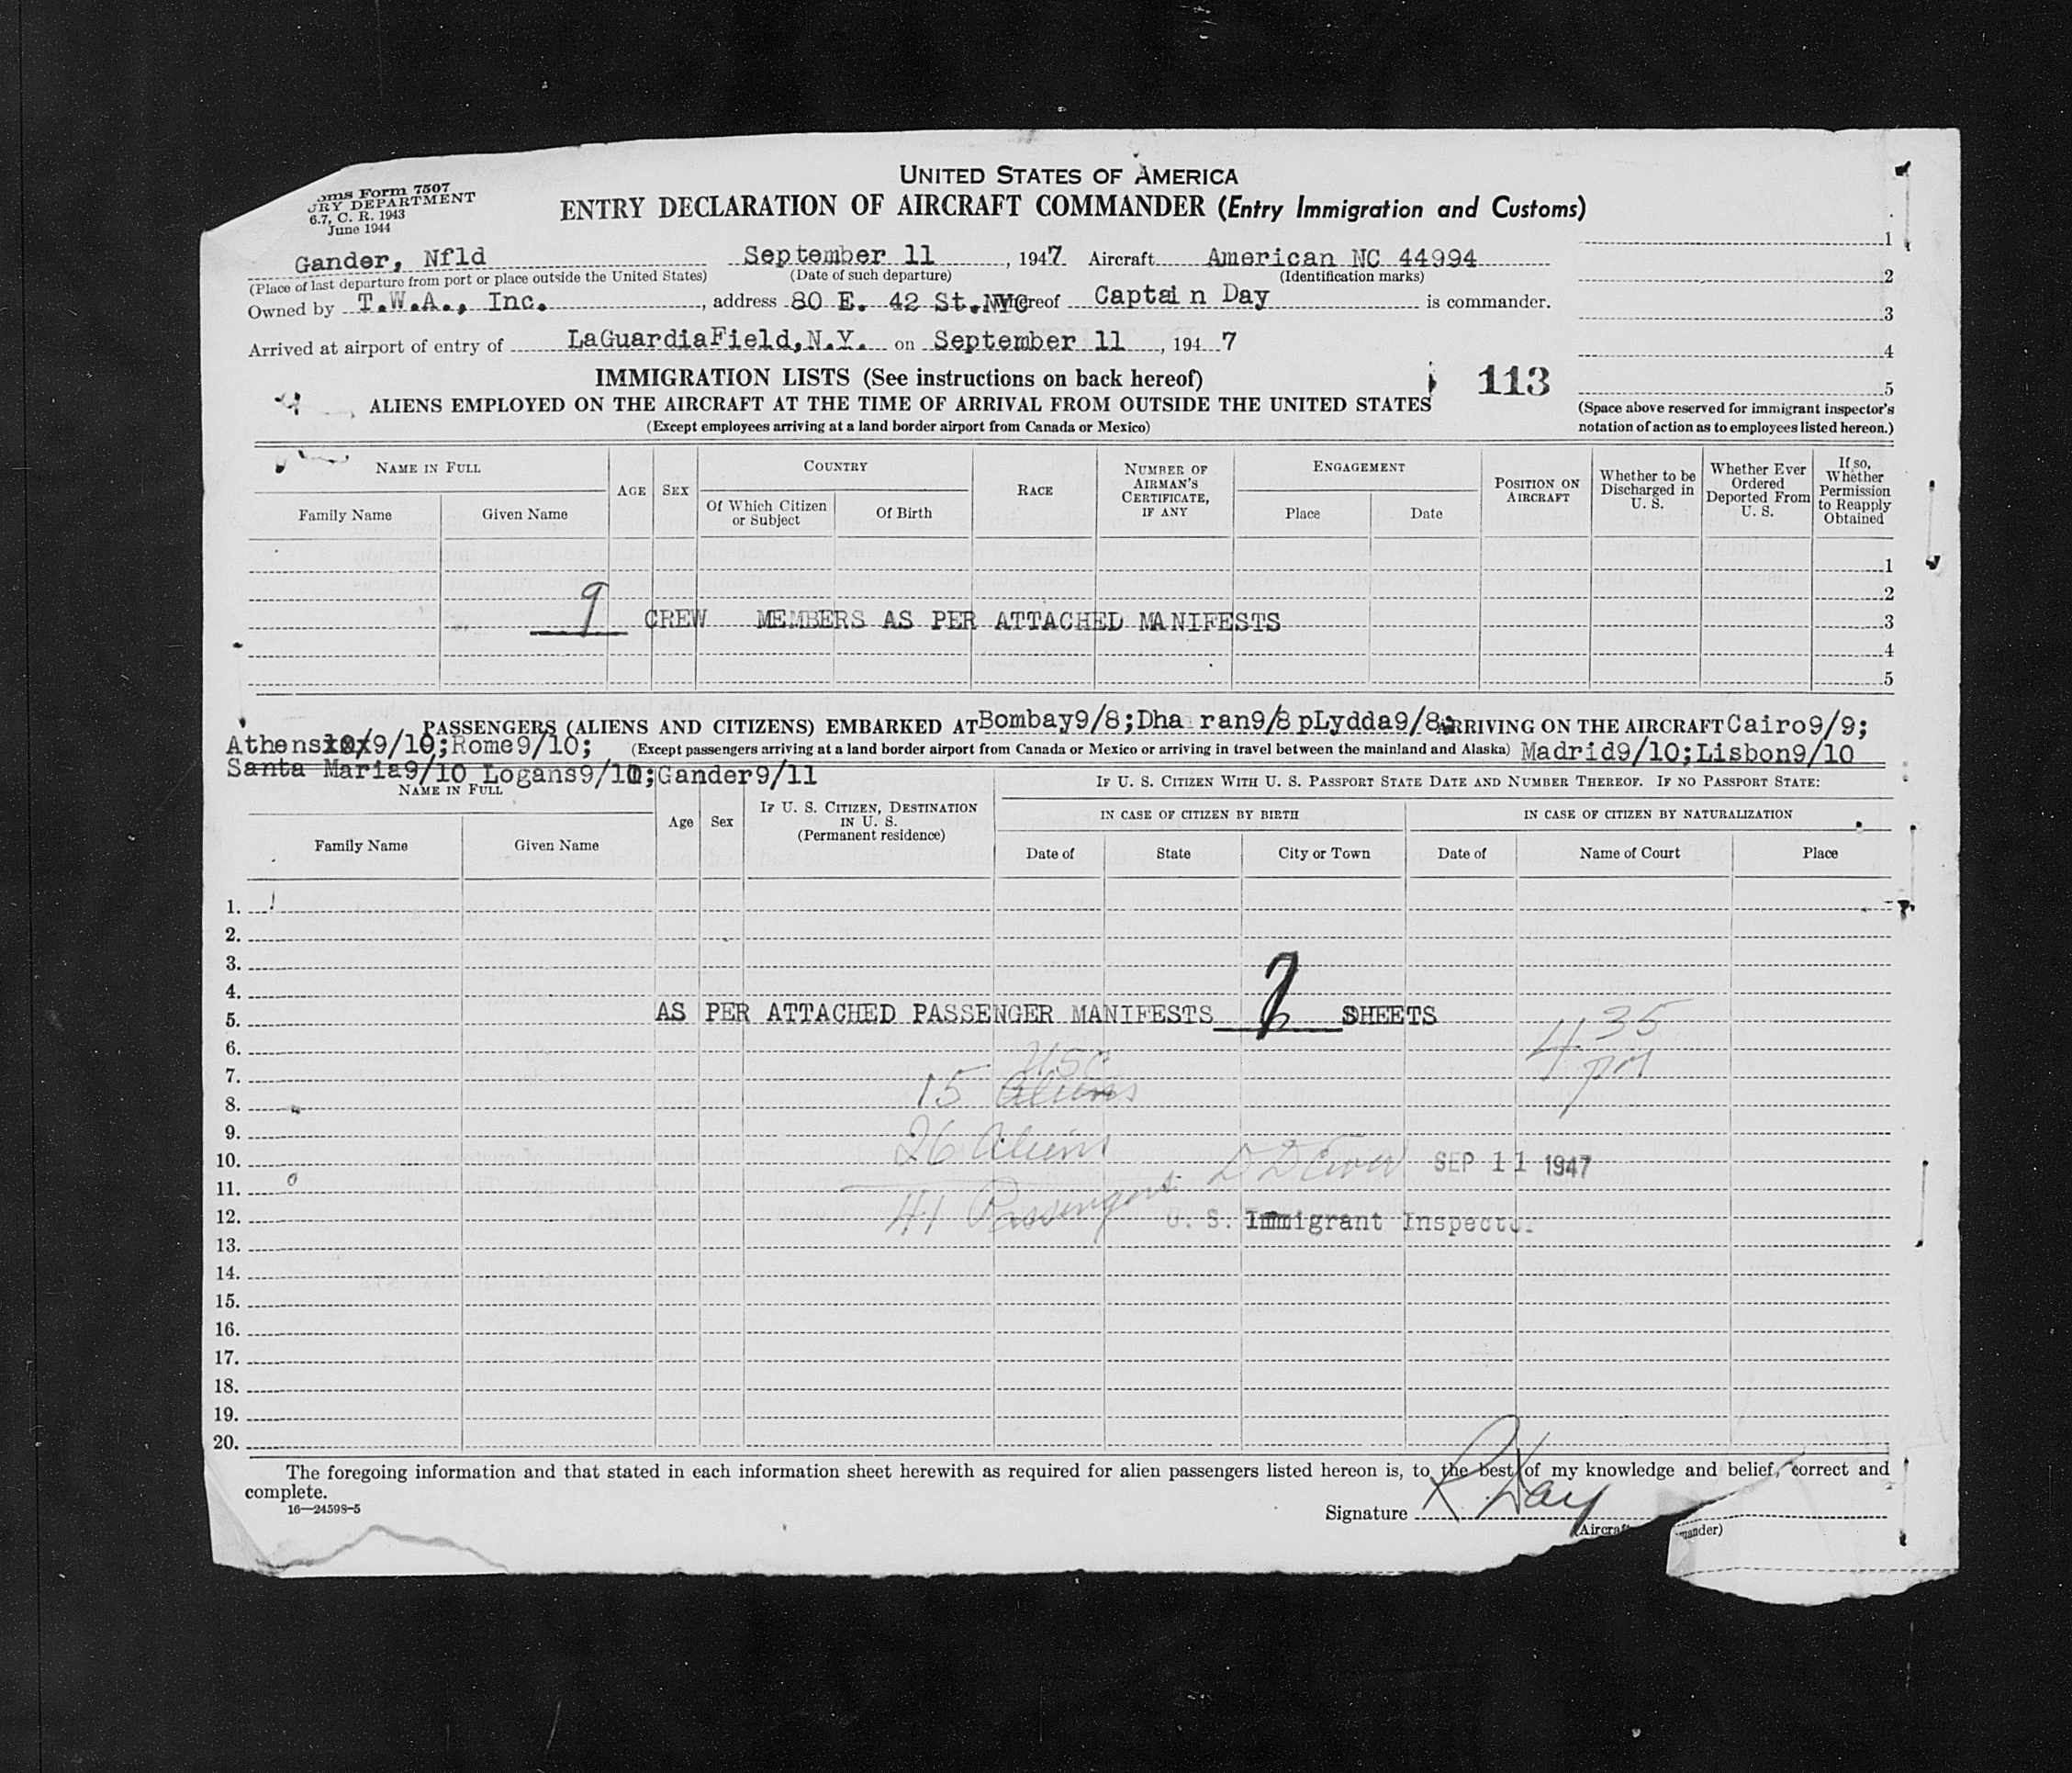 UNITED STATES OF AMERICA
oms Form 7507
URY DEPARTMENT
6.7, C. R. 1943
June 1944
ENTRY DECLARATION OF AIRCRAFT COMMANDER (Entry Immigration and Customs)
Gander, Nfld September 11, 1947 Aircraft American NC 44994
(Place of last departure from port or place outside the United States) (Date of such departure) (Identification marks)
Owned by T.W.A., Inc., address 80 E. 42 St.NYC whereof Captain Day is commander.
Arrived at airport of entry of LaGuardiaField,N.Y. on September 11, 1947
1
2
3
4
5
(Space above reserved for immigrant inspector's
notation of action as to employees listed hereon.)
IMMIGRATION LISTS (See instructions on back hereof) 113
ALIENS EMPLOYED ON THE AIRCRAFT AT THE TIME OF ARRIVAL FROM OUTSIDE THE UNITED STATES
(Except employees arriving at a land border airport from Canada or Mexico)
NAME IN FULL
Family Name Given Name
AGE SEX
COUNTRY
Of Which Citizen or Subject Of Birth
RACE
NUMBER OF AIRMAN'S CERTIFICATE, IF ANY
ENGAGEMENT
Place Date
POSITION ON AIRCRAFT
Whether to be Discharged in U. S.
Whether Ever Ordered Deported From U. S.
If so, Whether Permission to Reapply Obtained
1
2
9 CREW MEMBERS AS PER ATTACHED MANIFESTS 3
4
5
PASSENGERS (ALIENS AND CITIZENS) EMBARKED AT Bombay9/8;Dha ran9/8 pLydda9/8; ARRIVING ON THE AIRCRAFT Cairo9/9;
Athens 9/10;Rome9/10; (Except passengers arriving at a land border airport from Canada or Mexico or arriving in travel between the mainland and Alaska) Madrid9/10;Lisbon9/10
Santa Maria9/10 Logans9/11;Gander9/11
NAME IN FULL
Family Name Given Name
Age Sex
IF U. S. CITIZEN, DESTINATION IN U. S.
(Permanent residence)
IF U. S. CITIZEN WITH U. S. PASSPORT STATE DATE AND NUMBER THEREOF. IF NO PASSPORT STATE:
IN CASE OF CITIZEN BY BIRTH IN CASE OF CITIZEN BY NATURALIZATION
Date of State City or Town Date of Name of Court Place
1.
2.
3.
4.
5. AS PER ATTACHED PASSENGER MANIFESTS SHEETS
4 35
6.
pm
USC
7. 15 Aliens
8.
9. 26 Aliens
10. SEP 11 1947
11.
12. 41 Passengers U. S. Immigrant Inspector
13.
14.
15.
16.
17.
18.
19.
20.
The foregoing information and that stated in each information sheet herewith as required for alien passengers listed hereon is, to the best of my knowledge and belief, correct and
complete.
16—24598-5
Signature R Day
(Aircraf mander)